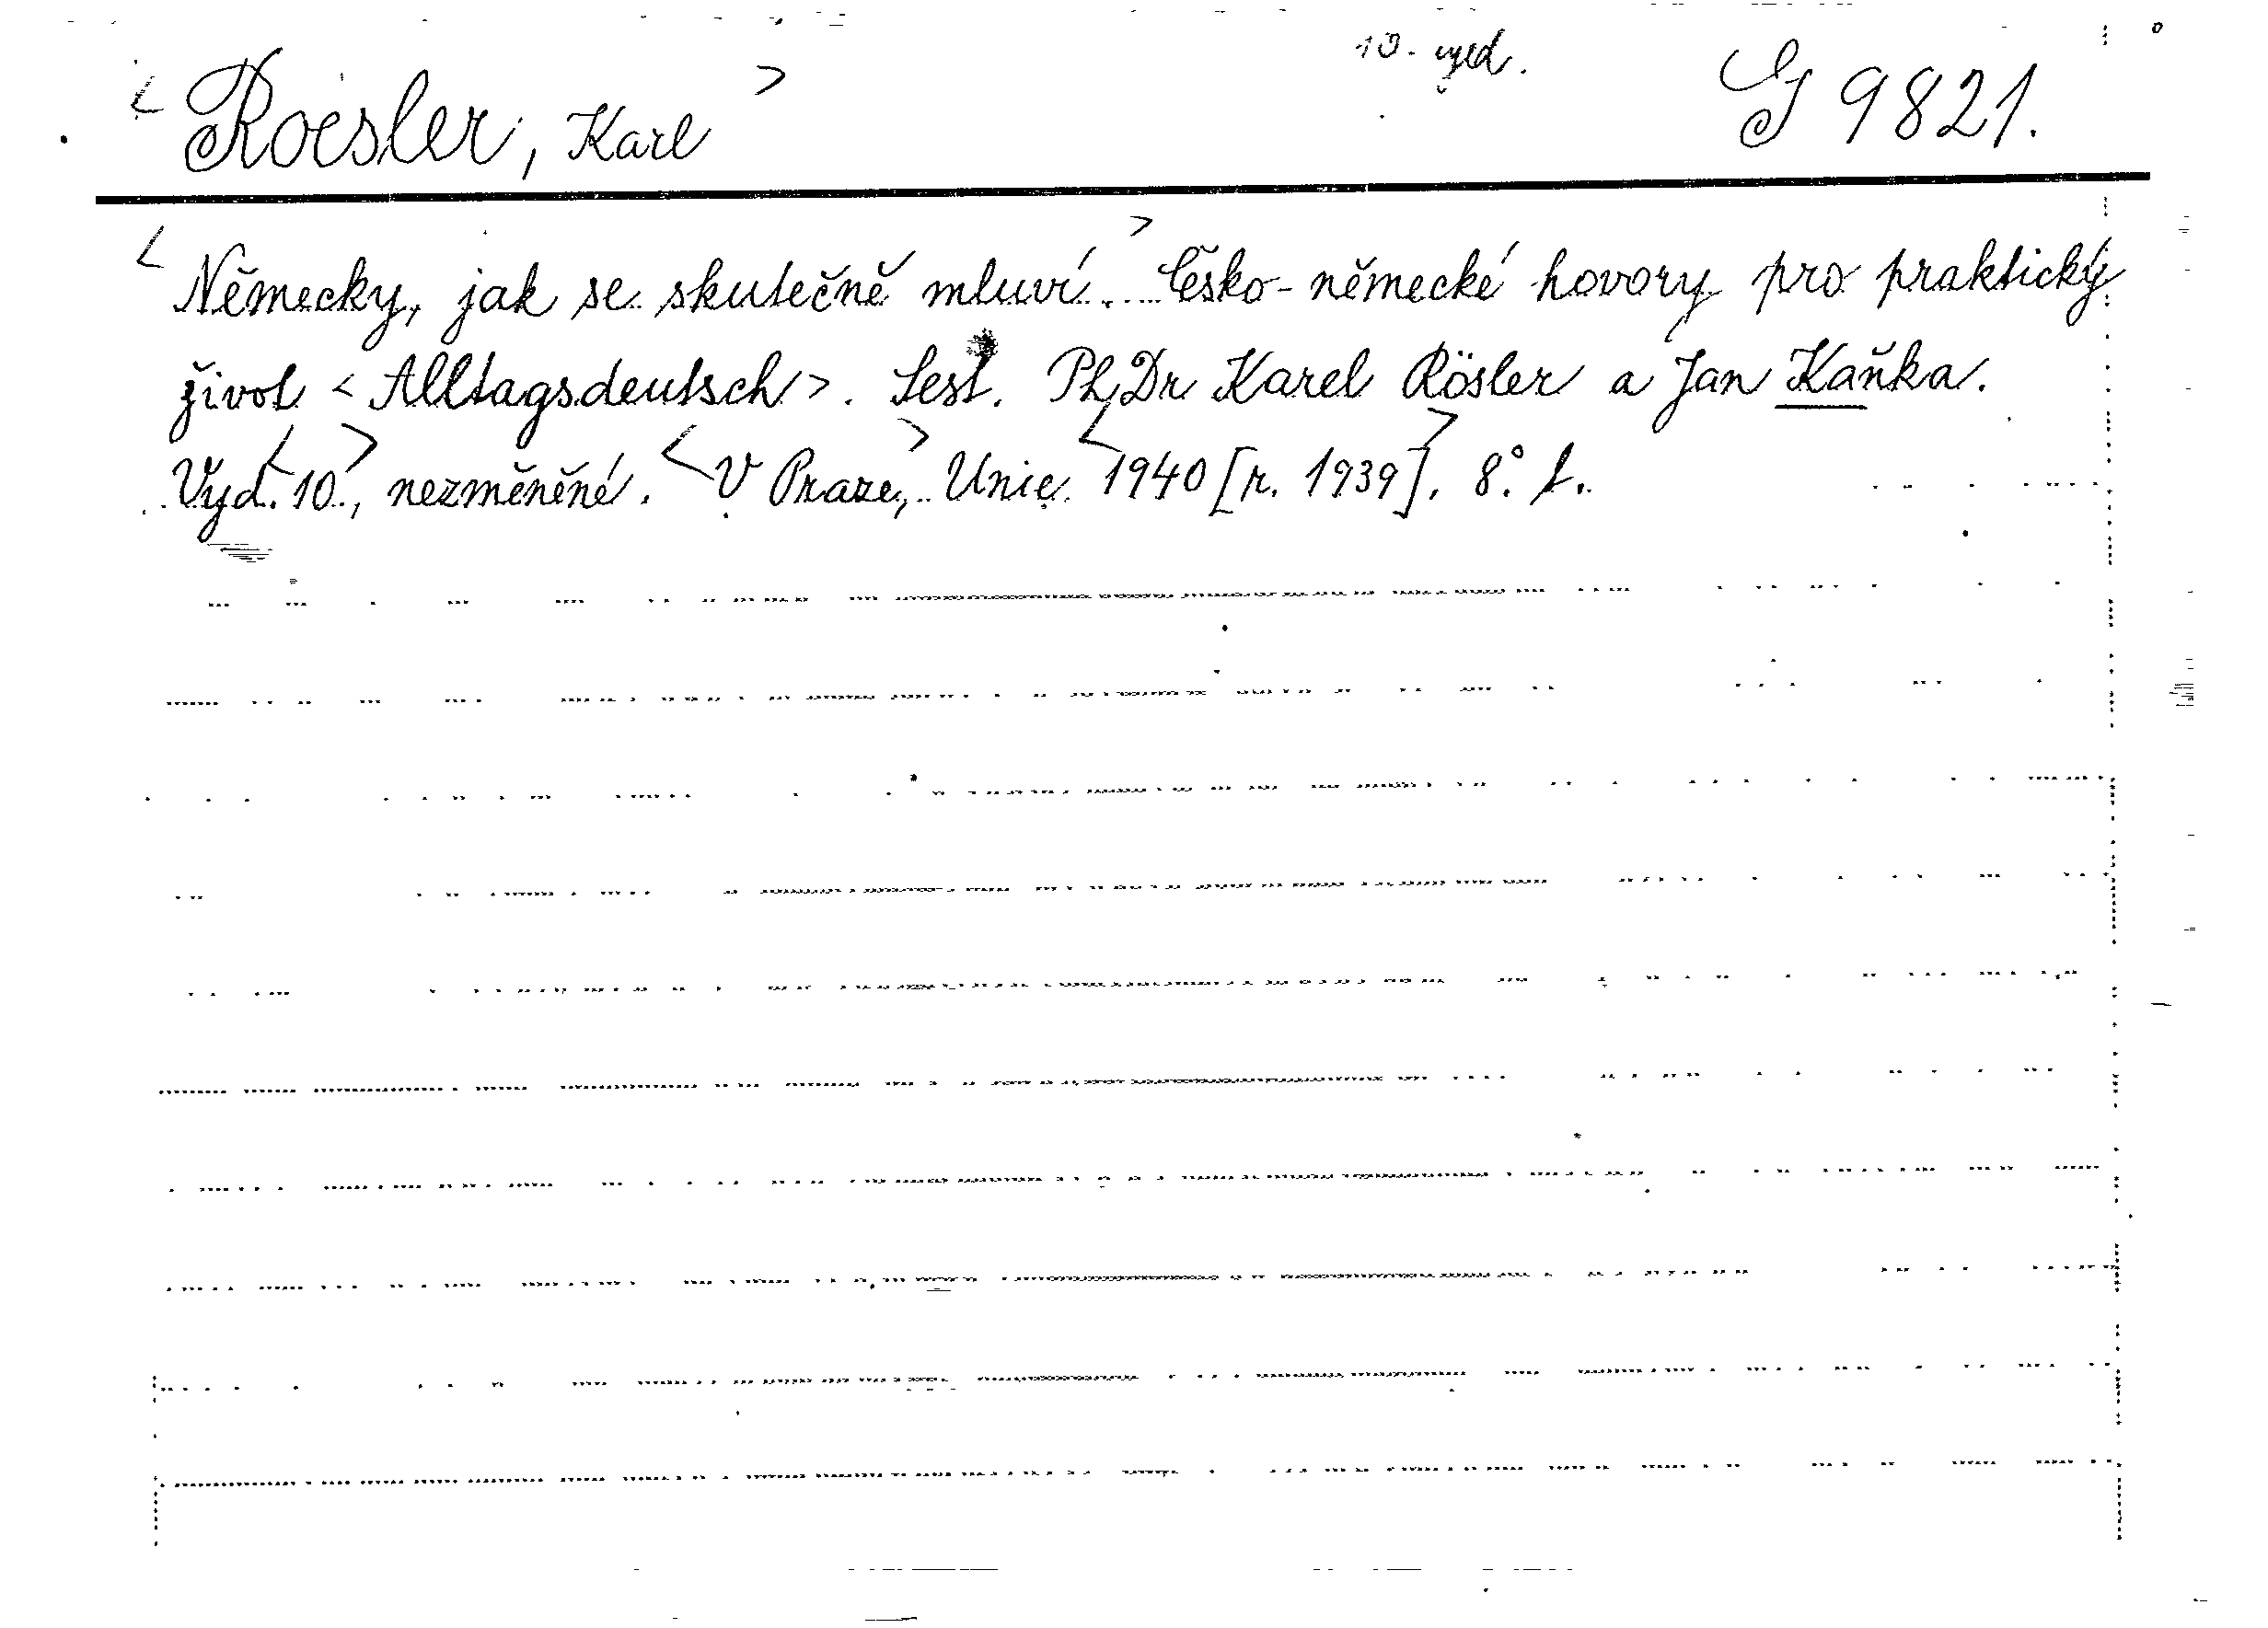 10. vyd.
<Roesler, Karl> J 9821.
<Německy, jak se skutečně mluví.> Česko-německé hovory pro praktický
život <Alltagsdeutsch>. Sest. PhDr Karel Rösler a Jan Kaňka.
Vyd. <10.>, nezměněné. <V Praze,> Unie <1940 [r. 1939]>. 8°. f.